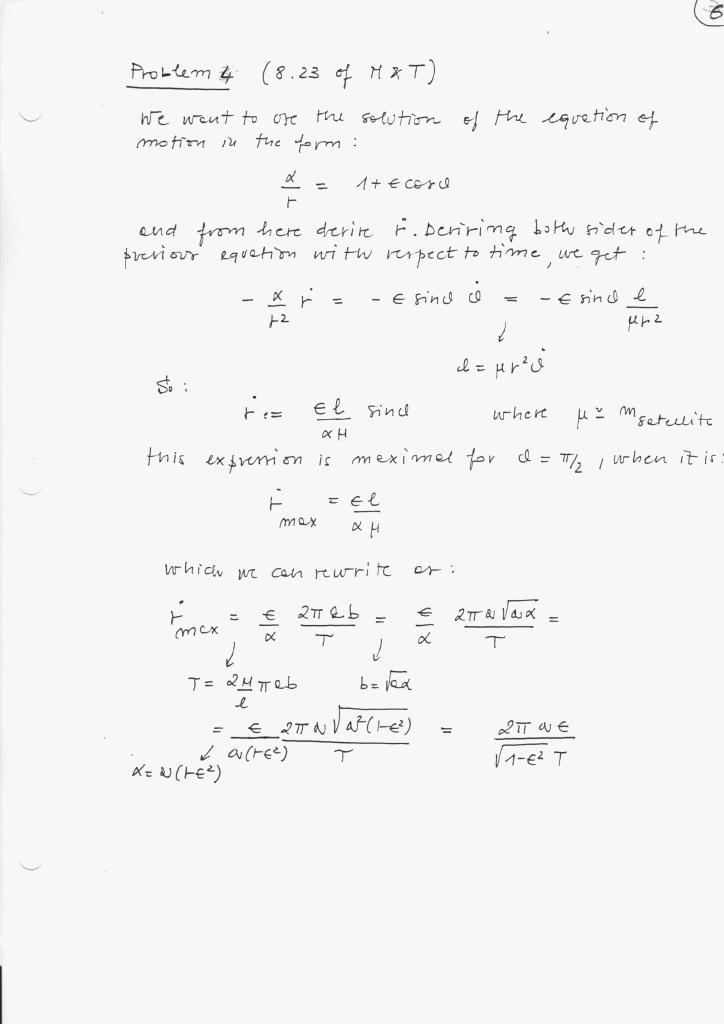 6
Problem 4 (8.23 of M & T)
We want to use the solution of the equation of
motion in the form :
α/r = 1 + ϵ cos ϑ
and from here derive ṙ. Deriving both sides of the
previous equation with respect to time, we get :
- α/r² ṙ = - ϵ sin ϑ ϑ̇ = - ϵ sin ϑ l/μr²
↓
l = μr²ϑ̇
So :
ṙ = ϵl/αμ sin ϑ where μ ≃ m satellite
this expression is maximal for ϑ = π/2 , when it is :
ṙ max = ϵl/αμ
which we can rewrite as :
ṙ max = ϵ/α 2πab/T = ϵ/α 2πa√aα/T =
↓ ↓
T = 2μ/l πab b = √aα
= ϵ/a(1-ϵ²) 2πa√a²(1-ϵ²)/T = 2πaϵ/√1-ϵ² T
↓
α = a(1-ϵ²)